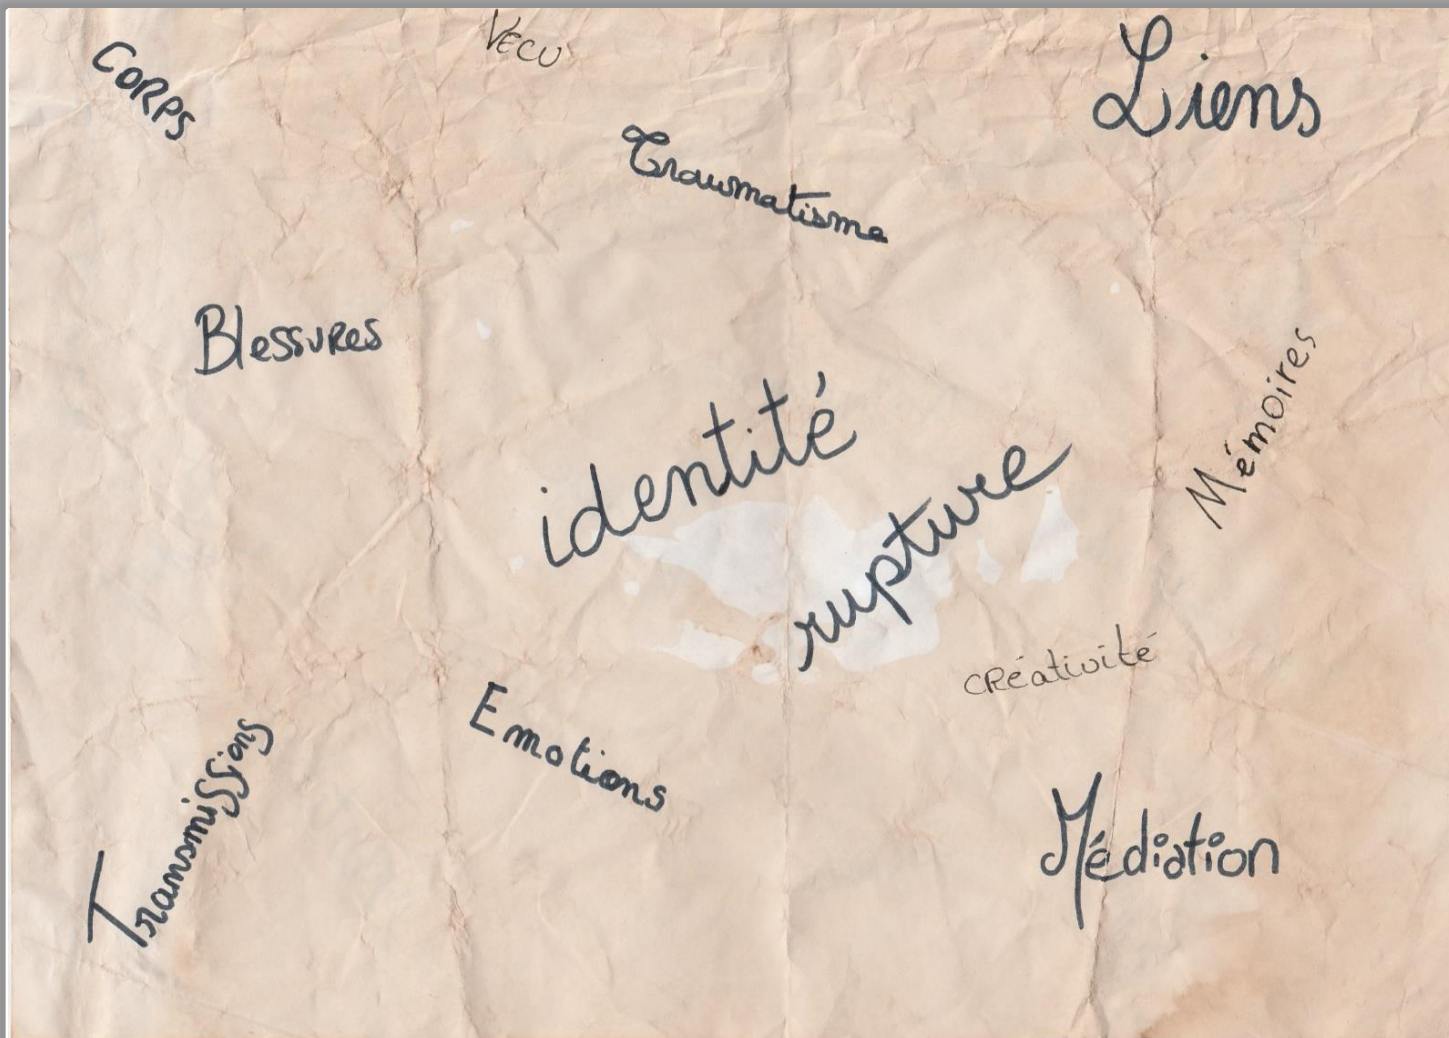 CORPS
VECU
Liens
Traumatisme
Blessures
Mémoires
identité
rupture
CRéativité
Emotions
Transmissions
Médiation